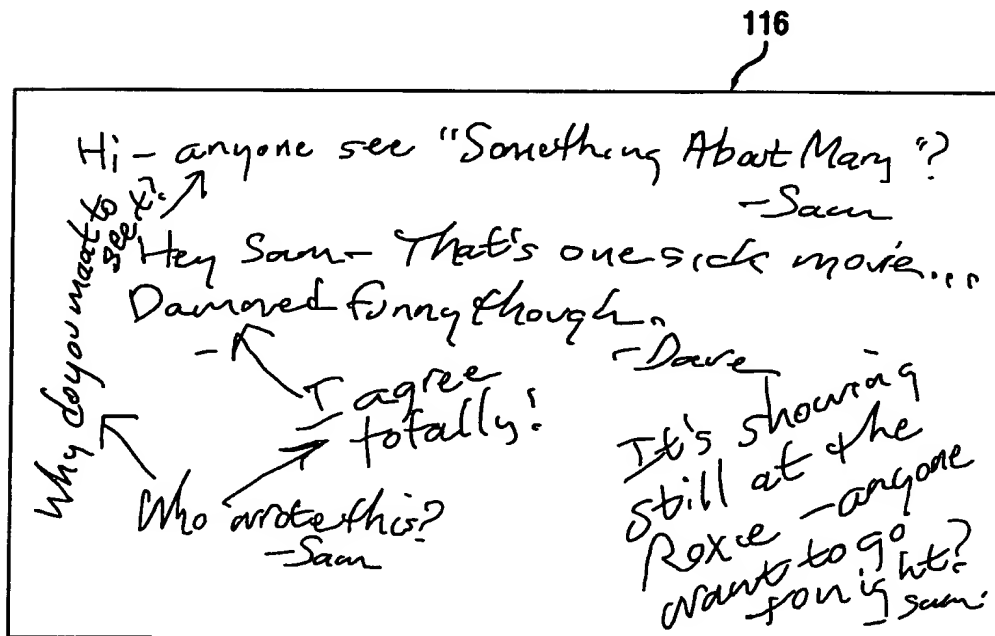 116
Hi - anyone see "Something About Mary"?
-Sam
Why do you want to
see it?
Hey Sam - That's one sick movie...
Damned funny though.
-Dave
I agree
totally!
Who wrote this?
-Sam
It's showing
still at the
Roxie - anyone
want to go
tonight?
Sam.